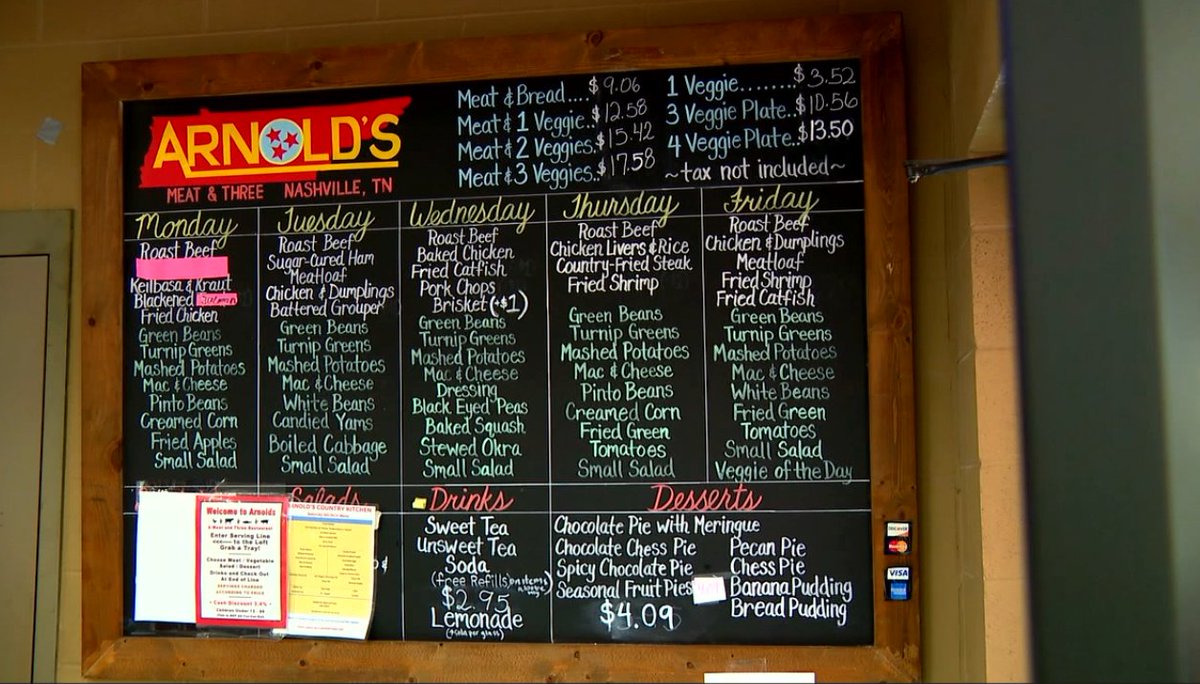 ARNOLD'S
MEAT & THREE NASHVILLE, TN
Meat & Bread.... $9.06
Meat & 1 Veggie.. $12.58
Meat & 2 Veggies. $15.42
Meat & 3 Veggies. $17.58
1 Veggie........ $3.52
3 Veggie Plate.. $10.56
4 Veggie Plate.. $13.50
~tax not included~
Monday
Roast Beef
Keilbasa & Kraut
Blackened
Fried Chicken
Green Beans
Turnip Greens
Mashed Potatoes
Mac & Cheese
Pinto Beans
Creamed Corn
Fried Apples
Small Salad
Tuesday
Roast Beef
Sugar-Cured Ham
Meatloaf
Chicken & Dumplings
Battered Grouper
Green Beans
Turnip Greens
Mashed Potatoes
Mac & Cheese
White Beans
Candied Yams
Boiled Cabbage
Small Salad
Wednesday
Roast Beef
Baked Chicken
Fried Catfish
Pork Chops
Brisket (+$1)
Green Beans
Turnip Greens
Mashed Potatoes
Mac & Cheese
Dressing
Black Eyed Peas
Baked Squash
Stewed Okra
Small Salad
Thursday
Roast Beef
Chicken Livers & Rice
Country-Fried Steak
Fried Shrimp
Green Beans
Turnip Greens
Mashed Potatoes
Mac & Cheese
Pinto Beans
Creamed Corn
Fried Green
Tomatoes
Small Salad
Friday
Roast Beef
Chicken & Dumplings
Meatloaf
Fried Shrimp
Fried Catfish
Green Beans
Turnip Greens
Mashed Potatoes
Mac & Cheese
White Beans
Fried Green
Tomatoes
Small Salad
Veggie of the Day
Welcome to Arnolds
A Meat and Three Restaurant
Enter Serving Line
to the Left
Grab a Tray!
Choose Meat - Vegetable
Salad - Dessert
Drinks and Check Out
At End of Line
SERVINGS CHARGED
ACCORDING TO PRICE
Cash Discount 3.4%
Salads
ARNOLD'S COUNTRY KITCHEN
Drinks
Sweet Tea
Unsweet Tea
Soda
(free Refills) on items above
$2.95
Lemonade
Desserts
Chocolate Pie with Meringue
Chocolate Chess Pie
Spicy Chocolate Pie
Seasonal Fruit Pies
$4.09
Pecan Pie
Chess Pie
Banana Pudding
Bread Pudding
DISCOVER
MasterCard
VISA